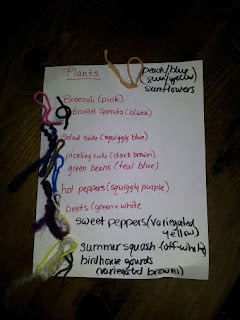 Plants
peach/blue
sun/yellow
sunflowers
Broccoli (pink)
Brussel Sprouts (black)
Salad cuke (squiggly blue)
pickling cuke (dark brown)
green beans (teal blue)
hot peppers (squiggly purple)
beets (green + white
sweet peppers (variegated
yellow)
summer squash (off-white)
birdhouse gourds
(variegated browns)